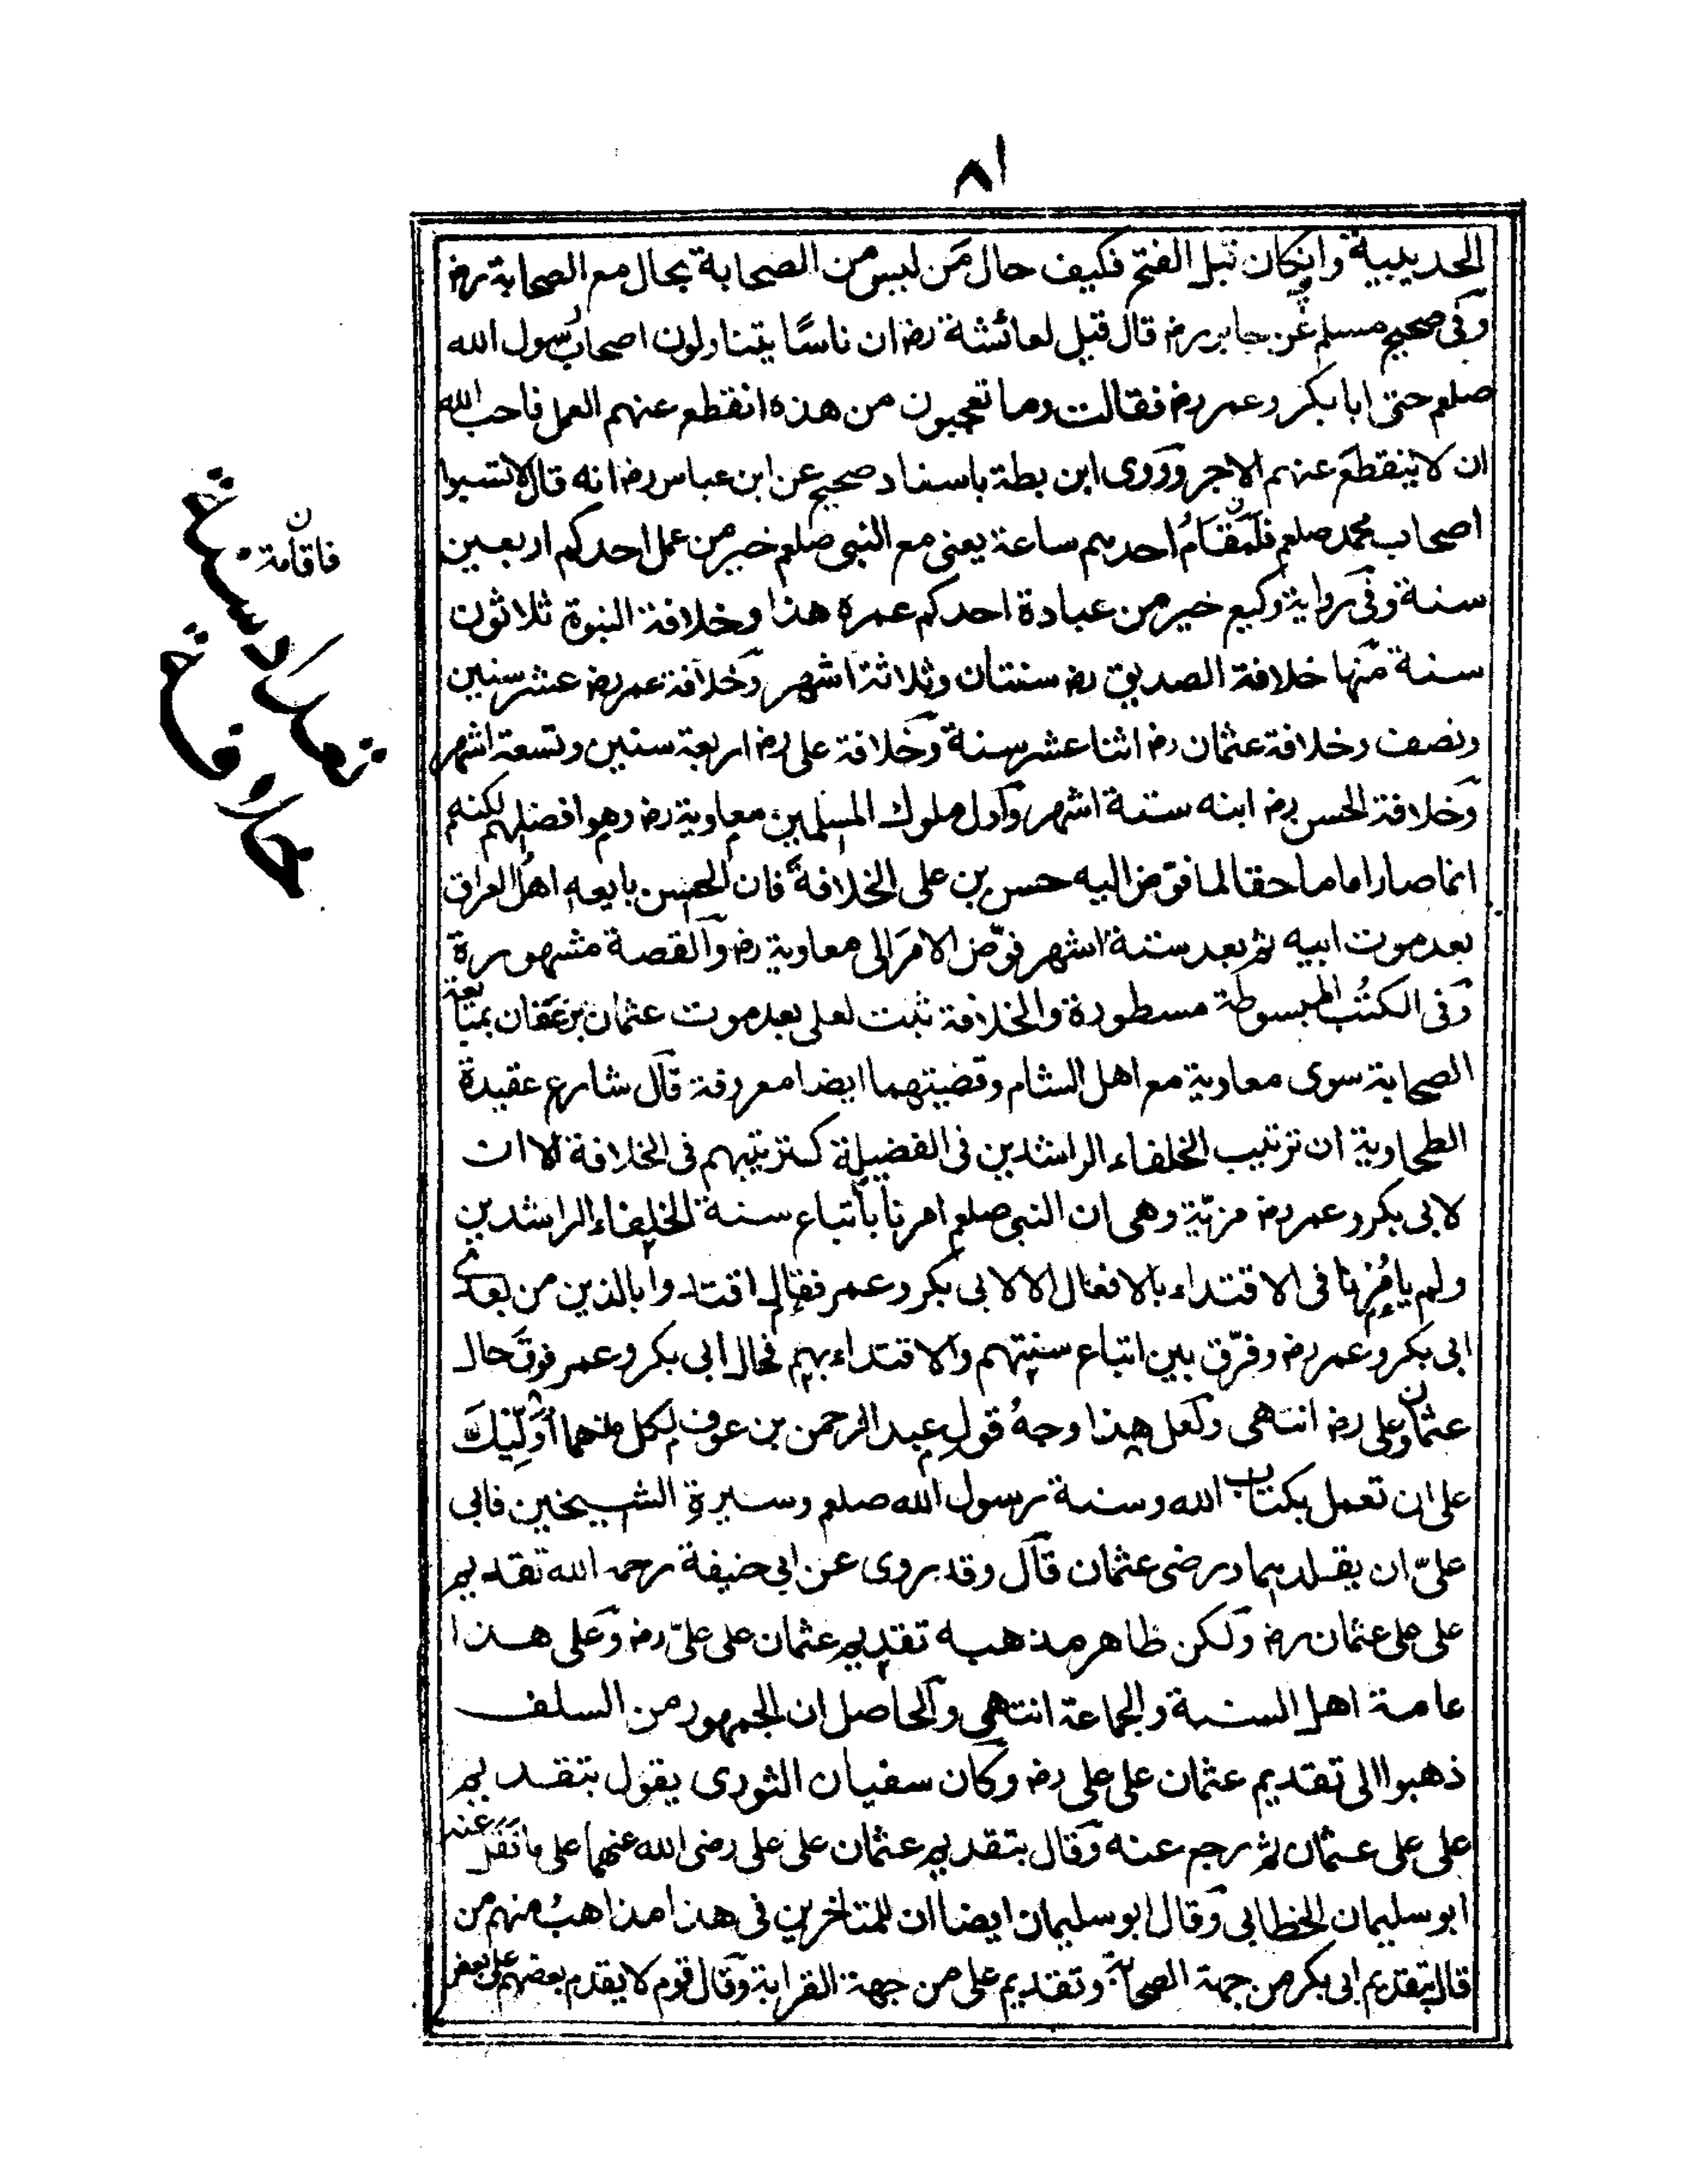 ٨١
الحديبية وانكان قبل الفتح فكيف حال من ليس من الصحابة بحال مع الصحابة رض
وفى صحيح مسلم عن جابر رض قال قيل لعائشة رض ان ناسًا يتناولون اصحاب رسول الله
صلعم حتى ابا بكر وعمر رض فقالت وما تعجبون من هذه انقطع عنهم العمل فاحب الله
ان لا ينقطع عنهم الاجر وروى ابن بطة باسناد صحيح عن ابن عباس رض انه قال لا تسبوا
اصحاب محمد صلعم فلمقام احدهم ساعة يعنى مع النبى صلعم خير من عمل احدكم اربعين
سنة وفى رواية وكيع خير من عبادة احدكم عمره هذا وخلافة النبوة ثلاثون
سنة منها خلافة الصديق رض سنتان وثلاثة اشهر وخلافة عمر رض عشر سنين
ونصف وخلافة عثمان رض اثنا عشر سنة وخلافة على رض اربعة سنين وتسعة اشهر
وخلافة الحسن رض ابنه ستة اشهر واول ملوك المسلمين معاوية رض وهو افضلهم لكنه
انما صار اماما حقا لما فوّض اليه حسن بن على الخلافة فان الحسن بايعه اهل العراق
بعد موت ابيه ثم بعد ستة اشهر فوّض الامر الى معاوية رض والقصة مشهورة
وفى الكتب المبسوطة مسطورة والخلافة ثبت لعلى بعد موت عثمان بن عفان بمبايعة
الصحابة سوى معاوية مع اهل الشام وقضيتهما ايضا معروفة قال شارح عقيدة
الطحاوية ان ترتيب الخلفاء الراشدين فى الفضيلة كترتيبهم فى الخلافة الا ان
لابى بكر وعمر رض مزيّة وهى ان النبى صلعم امرنا باتباع سنة الخلفاء الراشدين
ولم يامُرنا فى الاقتداء بالافعال الا لابى بكر وعمر فقال اقتدوا بالذين من بعدى
ابى بكر وعمر رض وفرّق بين اتباع سنتهم والاقتداء بهم فحال ابى بكر وعمر فوق حال
عثمان وعلى رض انتهى ولعل هذا وجهُ قول عبد الرحمن بن عوف لكل منهما اُوَلّيكَ
على ان تعمل بكتاب الله وسنة رسول الله صلعم وسيرة الشيخين فابى
علىّ ان يقلدهما ورضى عثمان قال وقد روى عن ابى حنيفة رحمه الله تقديم
على على عثمان رض ولكن ظاهر مذهبه تقديم عثمان على علىّ رض وعلى هذا
عامة اهل السنة والجماعة انتهى والحاصل ان الجمهور من السلف
ذهبوا الى تقديم عثمان على على رض وكان سفيان الثورى يقول بتقديم
على على عثمان ثم رجع عنه وقال بتقديم عثمان على على رضى الله عنهما على ما نقل عنه
ابو سليمان الخطابى وقال ابو سليمان ايضا ان للمتاخرين فى هذا مذاهبُ منهم من
قال بتقديم ابى بكر من جهة الصحابة وتقديم على من جهة القرابة وقال قوم لا يقدم بعضهم على بعض
فاقامة ن
تعداد سنة
خلافة